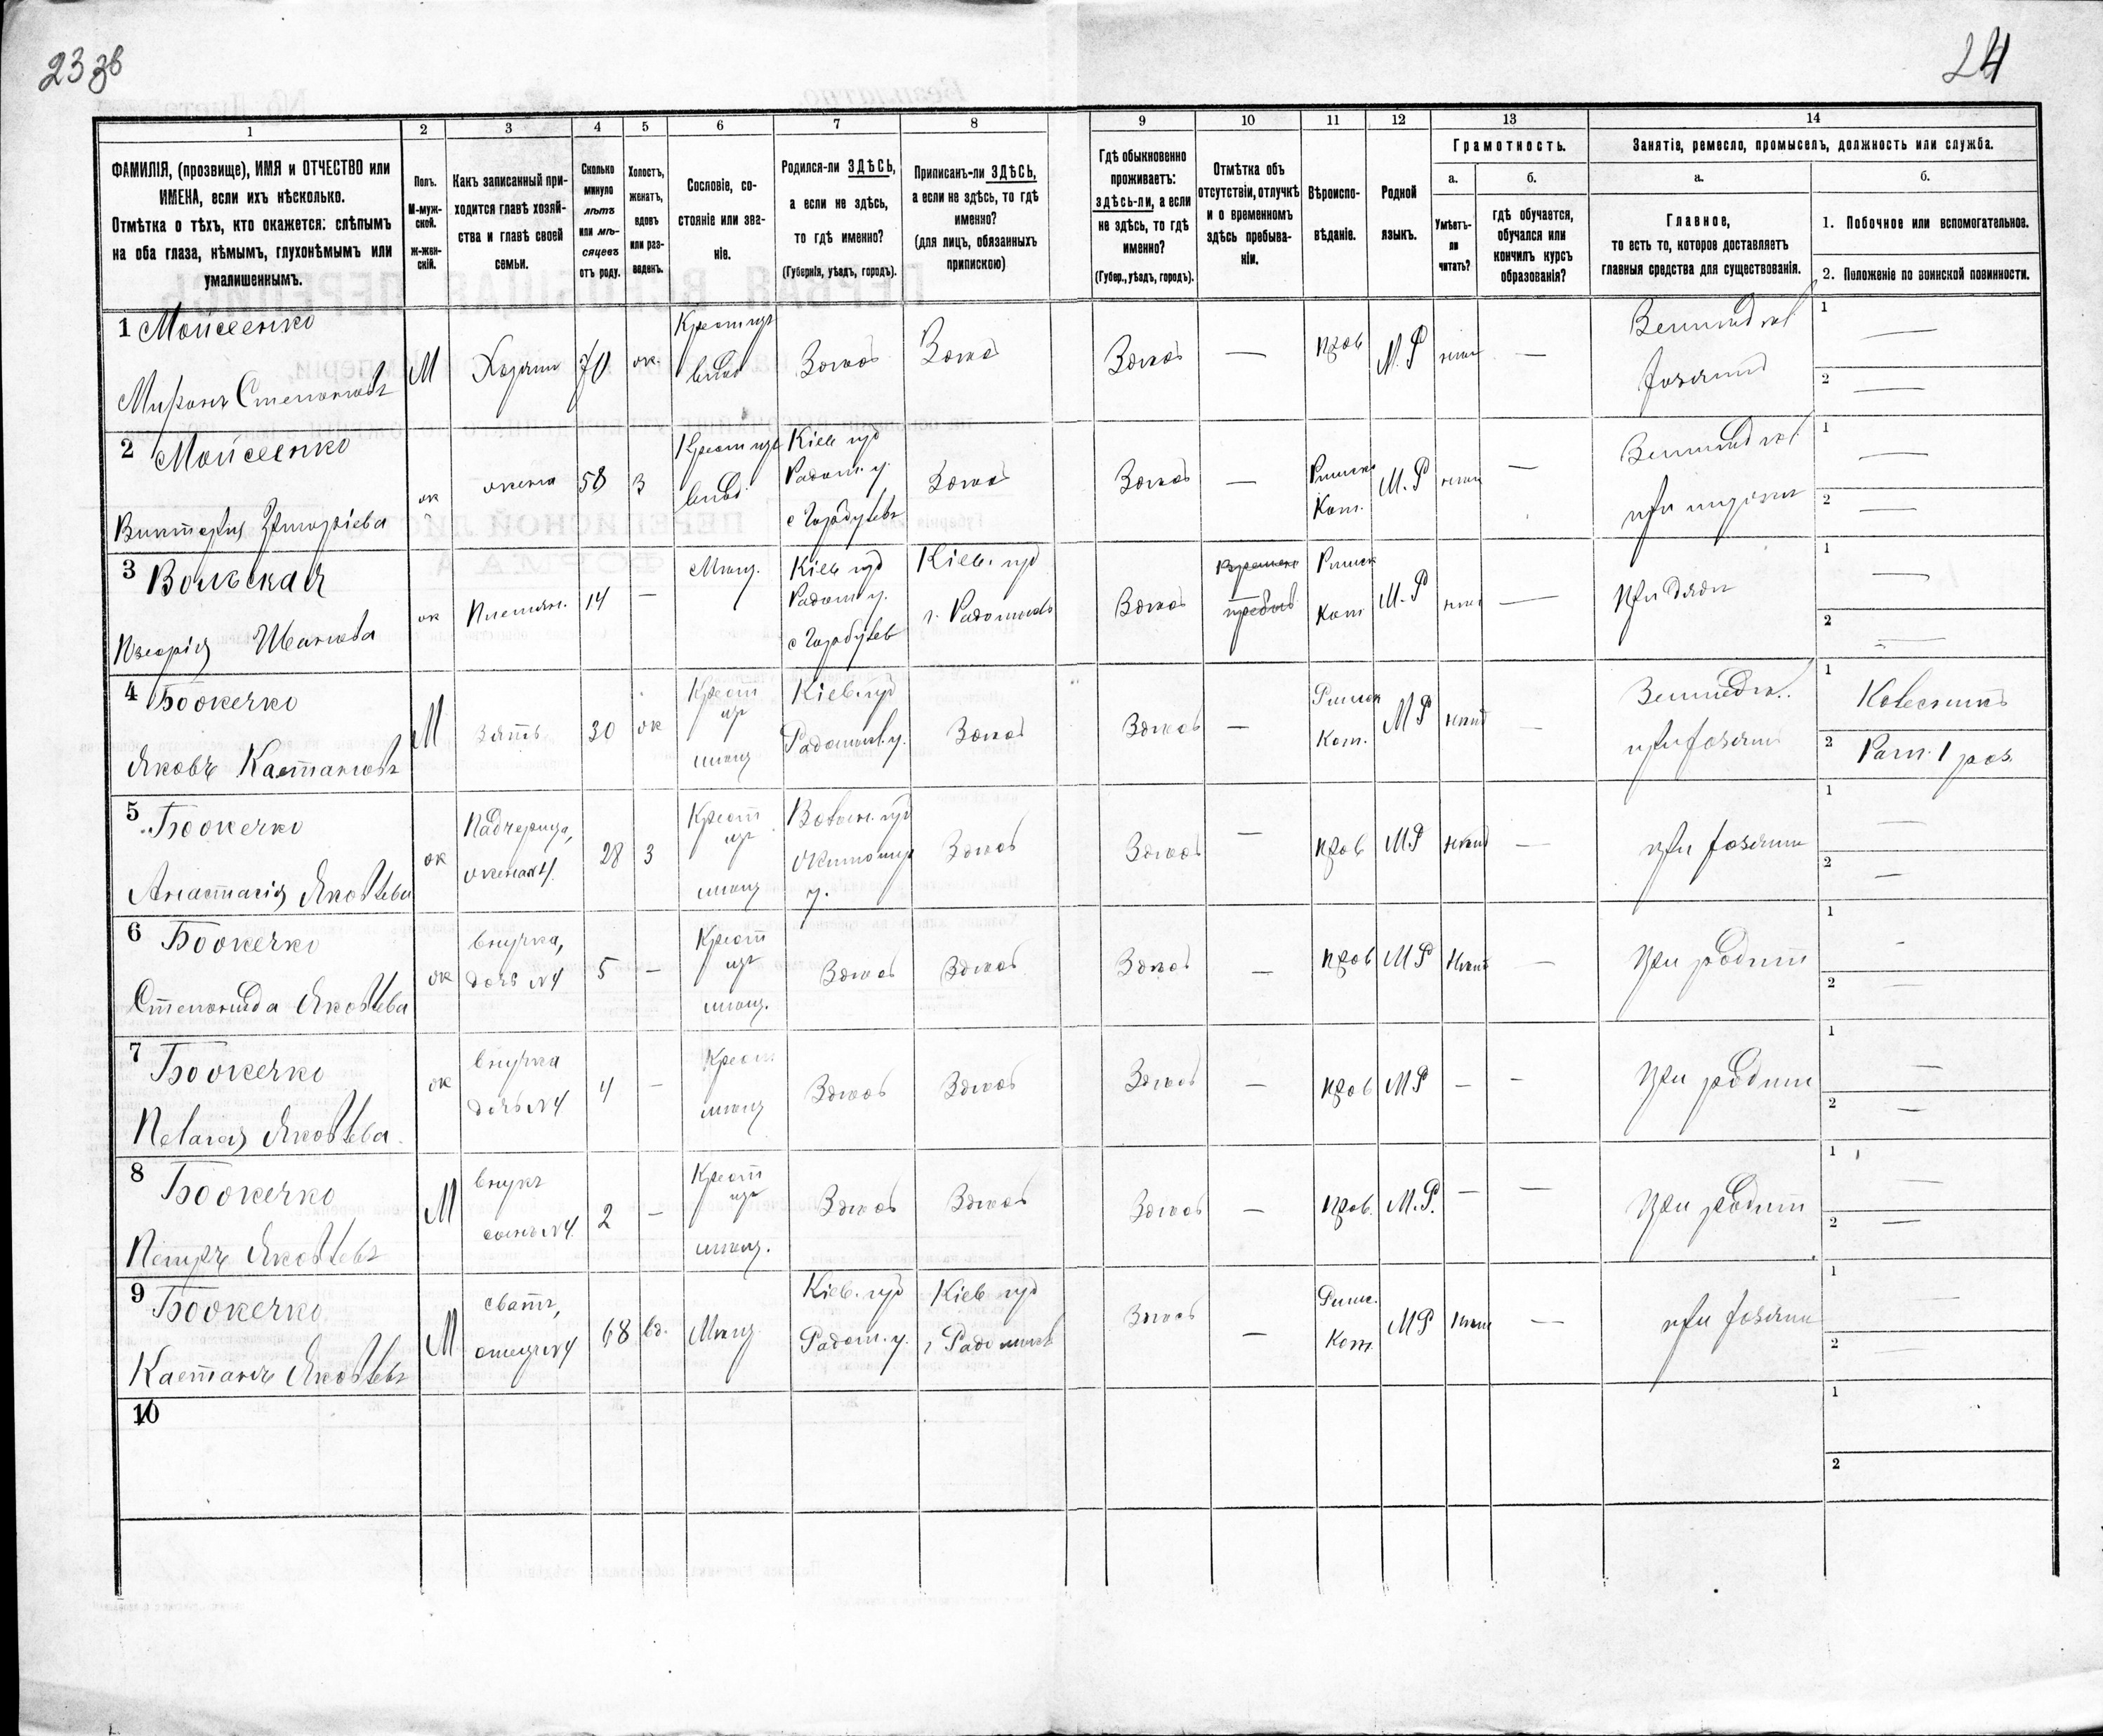 23 зв
24
1
2
3
4
5
6
7
8
9
10
11
12
13
14
ФАМИЛІЯ, (прозвище), ИМЯ и ОТЧЕСТВО или
ИМЕНА, если ихъ нѣсколько.
Отмѣтка о тѣхъ, кто окажется: слѣпымъ
на оба глаза, нѣмымъ, глухонѣмымъ или
умалишеннымъ.
Полъ.
М-муж-
ской.
ж-жен-
скій.
Какъ записанный при-
ходится главѣ хозяй-
ства и главѣ своей
семьи.
Сколько
минуло
лѣтъ
или мѣ-
сяцевъ
отъ роду.
Холостъ,
женатъ,
вдовъ
или раз-
веденъ.
Сословіе, со-
стояніе или зва-
ніе.
Родился-ли ЗДѢСЬ,
а если не здѣсь,
то гдѣ именно?
(Губернія, уѣздъ, городъ).
Приписанъ-ли ЗДѢСЬ,
а если не здѣсь, то гдѣ
именно?
(для лицъ, обязанныхъ
припискою)
Гдѣ обыкновенно
проживаетъ:
здѣсь-ли, а если
не здѣсь, то гдѣ
именно?
(Губер., уѣздъ, городъ).
Отмѣтка объ
отсутствіи, отлучкѣ
и о временномъ
здѣсь пребыва-
ніи.
Вѣроиспо-
вѣданіе.
Родной
языкъ.
Грамотность.
а.
б.
Умѣетъ-
ли
читать?
гдѣ обучается,
обучался или
кончилъ курсъ
образованія?
Занятіе, ремесло, промыселъ, должность или служба.
а.
б.
Главное,
то есть то, которое доставляетъ
главныя средства для существованія.
1. Побочное или вспомогательное.
2. Положеніе по воинской повинности.
1 Мойсеенко
Миронъ Степановъ
М
Хозяин
70
ж.
Крест изъ
Здѣсь
Здѣсь
Здѣсь
—
прав
М.Р
—
1 —
2 —
2 Мойсеенко
Викторія Григоріева
ж
жена
58
З
Крест изъ
Кіев губ
Радом. у.
Здѣсь
Здѣсь
—
Римск
Кат.
М.Р
—
1 —
2 —
3 Вольская
Ивановa
ж
Племян.
14
—
Мѣщ.
Кіев губ
Радом у.
Кіев. губ
г. Радомысль
Здѣсь
Времен
пребыв
Римск
Кат
М.Р
—
При дяди
1 —
2 —
4 Божечко
Яковъ Каетановъ
М
Зять
30
ж
Крест
изъ
мѣщ
Кіев. губ
Радомысл. у.
Здѣсь
Здѣсь
—
Римск
Кат.
М Р
—
1 Колесникъ
2 Ратн. 1 раз.
5 Божечко
Анастасія Яковлева
ж
Падчерица,
жена №4
28
З
Крест
изъ
мѣщ
Волын. губ
Житомир
у.
Здѣсь
Здѣсь
—
прав
М Р
—
1 —
2 —
6 Божечко
Степанида Яковлева
ж
внучка,
дочь №4
5
—
Крест
изъ
мѣщ.
Здѣсь
Здѣсь
Здѣсь
—
прав
М Р
—
При родит
1 —
2 —
7 Божечко
Пелагея Яковлева
ж
внучка
дочь №4
4
—
Крест
мѣщ
Здѣсь
Здѣсь
Здѣсь
—
прав
М Р
—
—
При родит
1 —
2 —
8 Божечко
Петръ Яковлевъ
М
внукъ
сынъ №4
2
—
Крест
изъ
мѣщ.
Здѣсь
Здѣсь
Здѣсь
—
прав.
М.Р.
—
—
При родит
1 —
2 —
9 Божечко
Каетанъ Яковлевъ
М
сватъ,
отецъ №4
68
вд.
Мѣщ
Кіев. губ
Радом. у.
Кіев губ
г Радомысль
Здѣсь
—
Римс.
Кат.
М Р
—
1 —
2 —
10
1
2